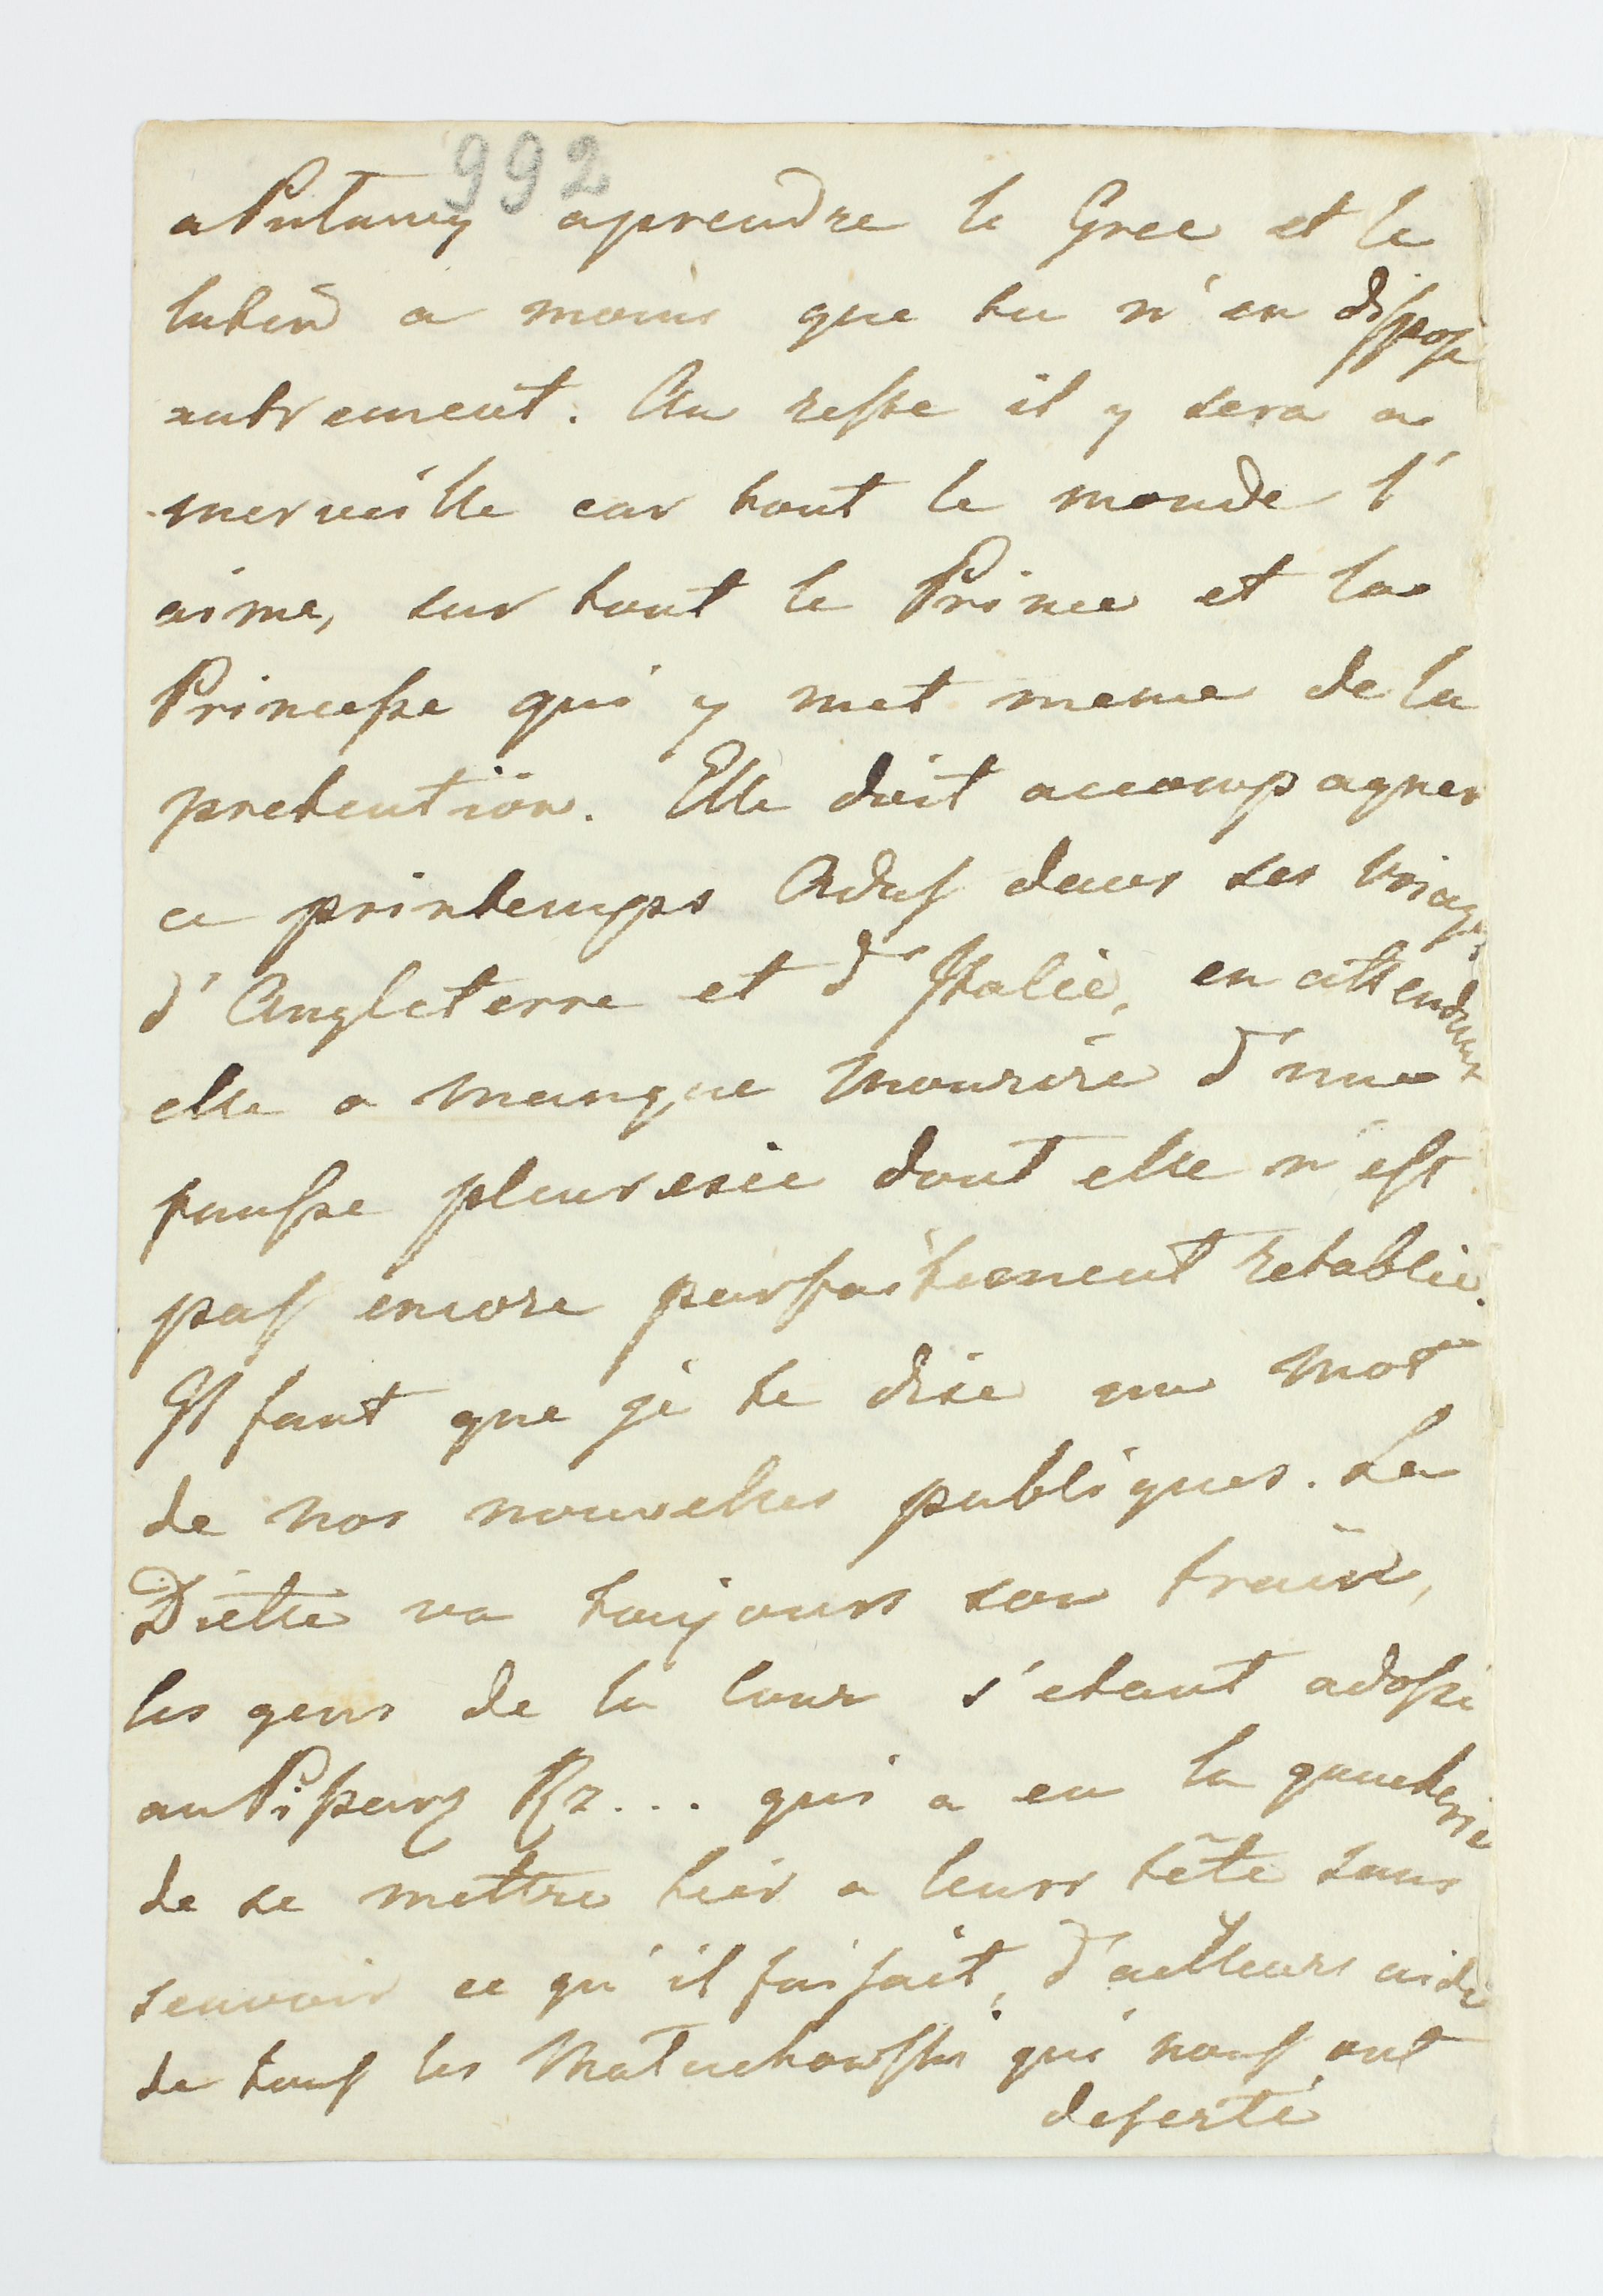 992
a Pulawy aprendre le Grec et le
latin a moins que tu n'en dispose
autrement. Au reste il y sera a
merveille car tout le monde l'
aime, sur tout le Prince et la
Princesse qui y met meme de la
pretention. Elle doit accompagner
ce printemps Adas dans ses voiages
d'Angleterre et d'Italie, en attendant
elle a manque mourire d'une
fausse pleuresie dont elle n'est
pas encore parfaitement retablie.
Il faut que je te dise un mot
de nos nouvelles publiques. La
Diette va toujours son train,
les gens de la cour s'etant adossé
au Pisarz Rz... qui a eu la gaucherie
de se mettre hier a leurs tête sans
scavoir ce qu'il faisait, d'ailleurs aidé
de tous les Malachowski qui nous ont
deserté